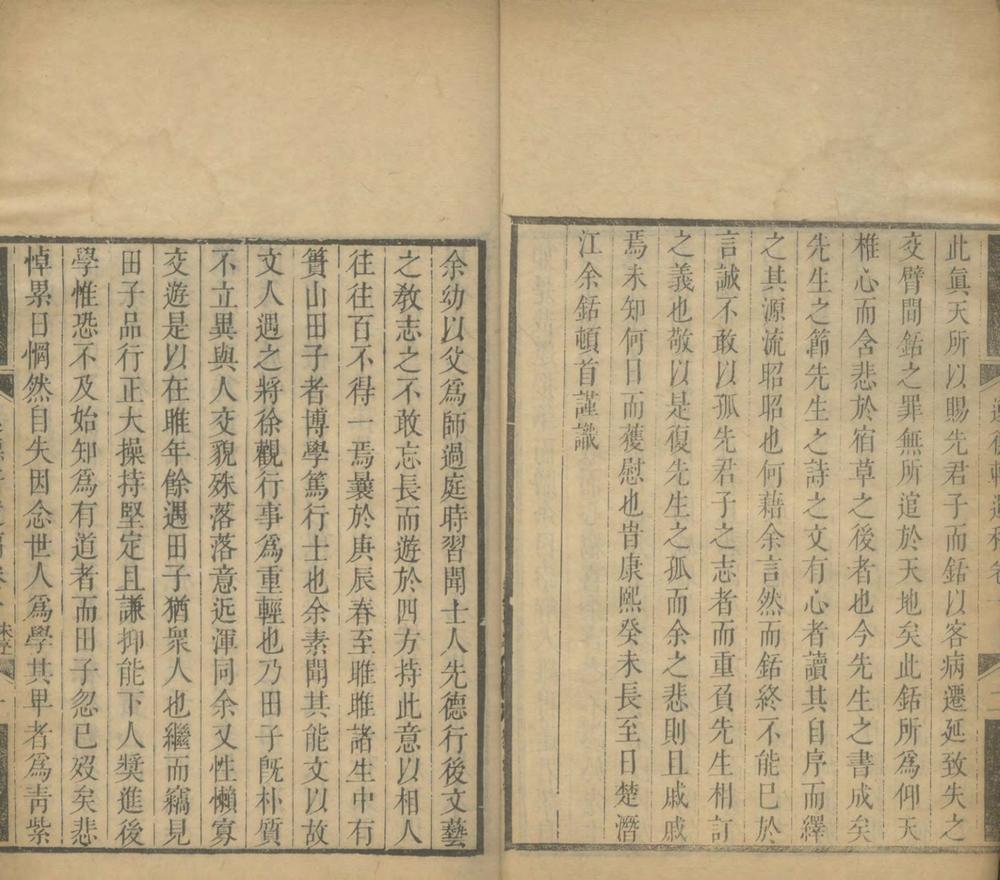 此眞天所以賜先君子而銛以客病遷延致失之
交臂間銛之罪無所逭於天地矣此銛所爲仰天
椎心而含悲於宿草之後者也今先生之書成矣
先生之節先生之詩之文有心者讀其自序而繹
之其源流昭昭也何藉余言然而銛終不能已於
言誠不敢以孤先君子之志者而重負先生相訂
之義也敬以是復先生之孤而余之悲則且戚戚
焉未知何日而獲慰也昔康熙癸未長至日楚潛
江余銛頓首謹識
余幼以父爲師過庭時習聞士人先德行後文藝
之敎志之不敢忘長而遊於四方持此意以相人
往往百不得一焉曩於庚辰春至睢睢諸生中有
簣山田子者博學篤行士也余素聞其能文以故
文人遇之將徐觀行事爲重輕也乃田子旣朴質
不立異與人交貌殊落落意近渾同余又性懶寡
交遊是以在睢年餘遇田子猶衆人也繼而竊見
田子品行正大操持堅定且謙抑能下人獎進後
學惟恐不及始知爲有道者而田子忽已歿矣悲
悼累日惘然自失因念世人爲學其卑者爲靑紫